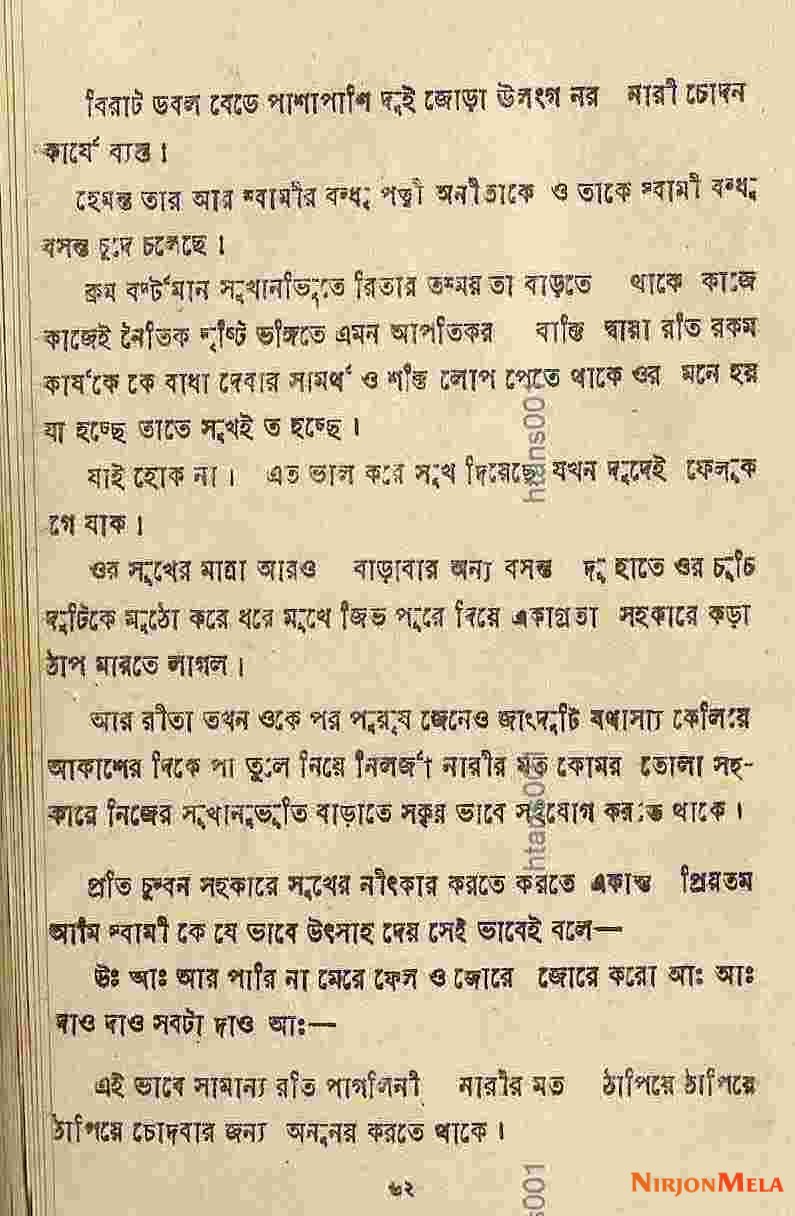 বিরাট ডবল বেডে পাশাপাশি দুই জোড়া উলংগ নর নারী চোদন
কার্যে ব্যস্ত।
হেমন্ত তার আর স্বামীর বন্ধু পত্নী অনীতাকে ও তাকে স্বামী বন্ধু
বসন্ত চুদে চলেছে।
ক্রম বর্ণ্টমান সুখানভিুতে রিতার তম্ময় তা বাড়তে থাকে কাজে
কাজেই নৈতিক দৃষ্টি ভঙ্গিতে এমন আপতিকর ব্যক্তি দ্বায়া রতি রকম
কার্যকে কে বাধা দেবার সামর্থ ও শক্তি লোপ পেতে থাকে ওর মনে হয়
যা হচ্ছে তাতে সুখই ত হচ্ছে।
যাই হোক না। এত ভাল করে সুখ দিয়েছে যখন দুদেই ফেলুক
গে যাক।
ওর সুখের মাত্রা আরও বাড়াবার অন্য বসন্ত দু হাতে ওর চুচি
দুটিকে মুঠো করে ধরে মুখে জিভ পুরে দিয়ে একাগ্রতা সহকারে কড়া
ঠাপ মারতে লাগল।
আর রীতা তখন ওকে পর পুরুষ জেনেও জাংদুটি কেলিয়ে
আকাশের দিকে পা তুলে নিয়ে নিলর্জা নারীর মত কোমর তোলা সহ-
কারে নিজের সুখানুভূতি বাড়াতে সক্বয় ভাবে সহযোগ করতে থাকে।
প্রতি চুম্বন সহকারে সুখের নীৎকার করতে করতে একান্ত প্রিয়তম
আমি স্বামী কে যে ভাবে উৎসাহ দেয় সেই ভাবেই বলে—
উঃ আঃ আর পারি না মেরে ফেল ও জোরে জোরে করো আঃ আঃ
দাও দাও সবটা দাও আঃ—
এই ভাবে সামান্য রতি পাগলিনী নারীর মত ঠাপিয়ে ঠাপিয়ে
ঠাপিয়ে চোদবার জন্য অনুনয় করতে থাকে।
৬২
htans001
htans001
001
NIRJONMELA